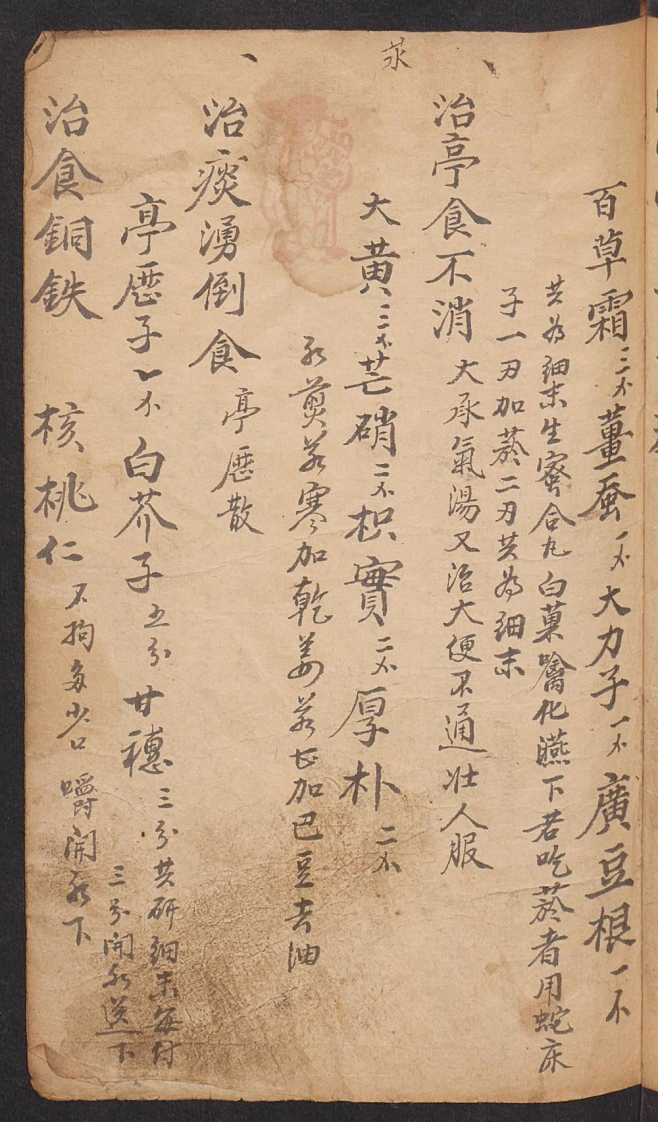 百草霜三不薑蚕一不大力子一不廣豆根一不
共為細末生蜜合丸白菓噙化嚥下若吃蔠者用蛇床
子一刃加蔠二刃共為細末
治亭食不消大承氣湯又治大便不通壮人服
大黄三不芒硝二不枳實二不厚朴二不
水煎若寒加乾姜若七加巴豆去油
治痰湧倒食亭歷散
亭歷子一不白芥子五分甘穗三分共研細末每付
三分開水送下
治食銅鉄核桃仁不拘多少口嚼開水下